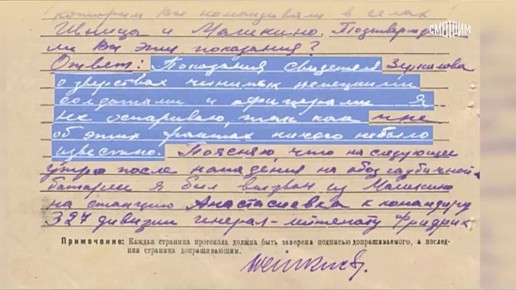 СМОТРИМ
которым Вы командовали в селах
Ивница и Машкино. Подтверждае
ли Вы эти показания?
Ответ: Показания свидетеля
о зверствах чинимых немецкими
солдатами и офицерами я
не оспариваю, так как мне
об этих фактах ничего не было
известно. Поясняю, что на следующее
утро после нападения на обоз гаубичной
батареи я был вызван из Машкино
на станцию Анастасиевка к командиру
327 дивизии генерал-лейтенату Фридрих
Примечание: Каждая страница протокола должна быть заверена подписью допрашиваемого, а послед-
няя страница допрашивающим.